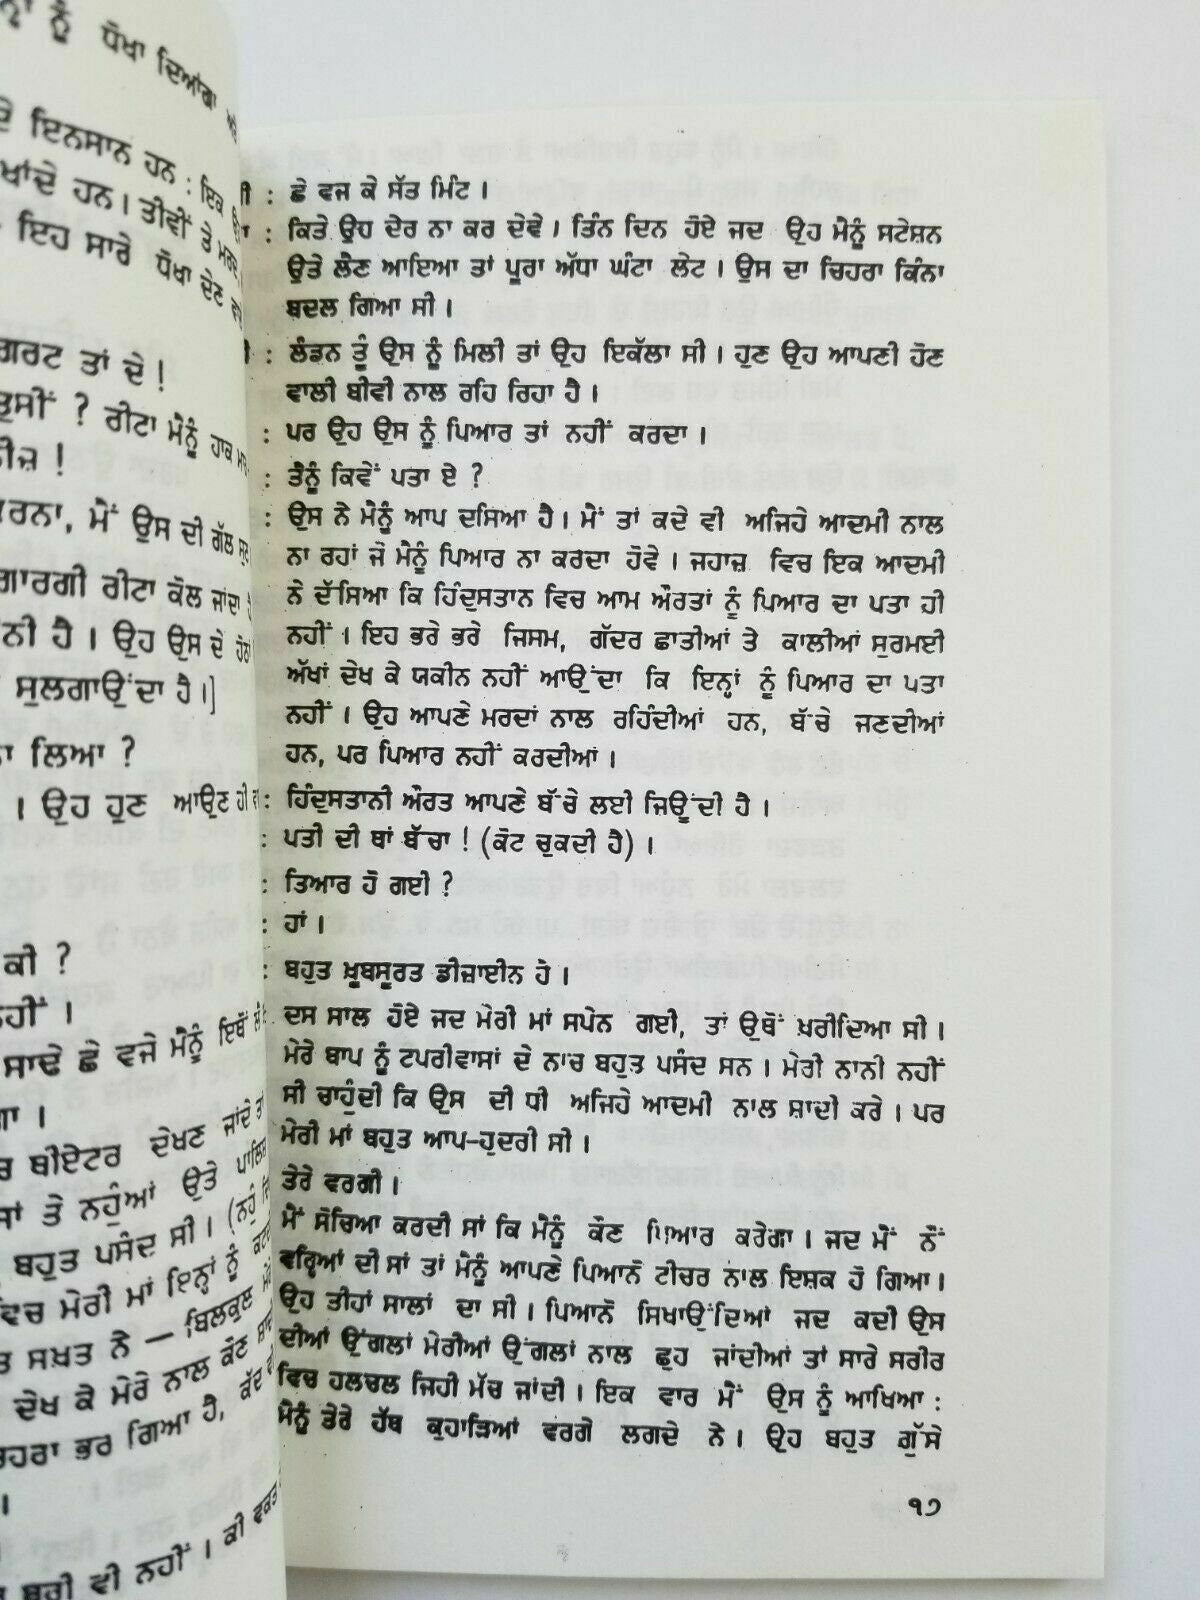 ਨੂੰ ਧੋਖਾ ਦਿਆਂਗਾ
ਇਨਸਾਨ ਹਨ : ਇਕ
ਖਾਂਦੇ ਹਨ। ਤੀਵੀਂ ਤੇ ਮਰਦ
ਇਹ ਸਾਰੇ ਧੋਖਾ ਦੇਣ
ਤਾਂ ਦੇ !
ਤੁਸੀਂ ? ਰੀਟਾ ਮੈਨੂੰ ਹਾਕ
ਮੈਂ ਉਸ ਦੀ ਗੱਲ
ਗਾਰਗੀ ਰੀਟਾ ਕੋਲ ਜਾਂਦਾ
ਹੈ। ਉਹ ਉਸ ਦੇ
ਸੁਲਗਾਉਂਦਾ ਹੈ।]
ਲਿਆ ?
। ਉਹ ਹੁਣ ਆਉਣ ਹੀ
ਕੀ ?
ਸਾਢੇ ਛੇ ਵਜੇ ਮੈਨੂੰ ਇਥੋਂ
ਥੀਏਟਰ ਦੇਖਣ ਜਾਂਦੇ ਤਾਂ
ਤੇ ਨਹੁੰਆਂ ਉਤੇ
ਬਹੁਤ ਪਸੰਦ ਸੀ।
ਮੇਰੀ ਮਾਂ ਇਨ੍ਹਾਂ ਨੂੰ
ਸਖ਼ਤ ਨੇ — ਬਿਲਕੁਲ
ਦੇਖ ਕੇ ਮੇਰੇ ਨਾਲ ਕੌਣ
ਭਰ ਗਿਆ ਹੈ, ਕੱਦ
ਬੁਰੀ ਵੀ ਨਹੀਂ। ਕੀ ਵਕਤ
: ਛੇ ਵਜ ਕੇ ਸੱਤ ਮਿੰਟ।
: ਕਿਤੇ ਉਹ ਦੇਰ ਨਾ ਕਰ ਦੇਵੇ। ਤਿੰਨ ਦਿਨ ਹੋਏ ਜਦ ਉਹ ਮੈਨੂੰ ਸਟੇਸ਼ਨ
ਉਤੇ ਲੈਣ ਆਇਆ ਤਾਂ ਪੂਰਾ ਅੱਧਾ ਘੰਟਾ ਲੇਟ। ਉਸ ਦਾ ਚਿਹਰਾ ਕਿੰਨਾ
ਬਦਲ ਗਿਆ ਸੀ।
: ਲੰਡਨ ਤੂੰ ਉਸ ਨੂੰ ਮਿਲੀ ਤਾਂ ਉਹ ਇਕੱਲਾ ਸੀ। ਹੁਣ ਉਹ ਆਪਣੀ ਹੋਣ
ਵਾਲੀ ਬੀਵੀ ਨਾਲ ਰਹਿ ਰਿਹਾ ਹੈ।
: ਪਰ ਉਹ ਉਸ ਨੂੰ ਪਿਆਰ ਤਾਂ ਨਹੀਂ ਕਰਦਾ।
: ਤੈਨੂੰ ਕਿਵੇਂ ਪਤਾ ਏ ?
: ਉਸ ਨੇ ਮੈਨੂੰ ਆਪ ਦਸਿਆ ਹੈ। ਮੈਂ ਤਾਂ ਕਦੇ ਵੀ ਅਜਿਹੇ ਆਦਮੀ ਨਾਲ
ਨਾ ਰਹਾਂ ਜੋ ਮੈਨੂੰ ਪਿਆਰ ਨਾ ਕਰਦਾ ਹੋਵੇ। ਜਹਾਜ਼ ਵਿਚ ਇਕ ਆਦਮੀ
ਨੇ ਦੱਸਿਆ ਕਿ ਹਿੰਦੁਸਤਾਨ ਵਿਚ ਆਮ ਔਰਤਾਂ ਨੂੰ ਪਿਆਰ ਦਾ ਪਤਾ ਹੀ
ਨਹੀਂ। ਇਹ ਭਰੇ ਭਰੇ ਜਿਸਮ, ਗੱਦਰ ਛਾਤੀਆਂ ਤੇ ਕਾਲੀਆਂ ਸੁਰਮਈ
ਅੱਖਾਂ ਦੇਖ ਕੇ ਯਕੀਨ ਨਹੀਂ ਆਉਂਦਾ ਕਿ ਇਨ੍ਹਾਂ ਨੂੰ ਪਿਆਰ ਦਾ ਪਤਾ
ਨਹੀਂ। ਉਹ ਆਪਣੇ ਮਰਦਾਂ ਨਾਲ ਰਹਿੰਦੀਆਂ ਹਨ, ਬੱਚੇ ਜਣਦੀਆਂ
ਹਨ, ਪਰ ਪਿਆਰ ਨਹੀਂ ਕਰਦੀਆਂ।
: ਹਿੰਦੁਸਤਾਨੀ ਔਰਤ ਆਪਣੇ ਬੱਚੇ ਲਈ ਜਿਊਂਦੀ ਹੈ।
: ਪਤੀ ਦੀ ਥਾਂ ਬੱਚਾ ! (ਕੋਟ ਚੁਕਦੀ ਹੈ)।
: ਤਿਆਰ ਹੋ ਗਈ ?
: ਹਾਂ।
: ਬਹੁਤ ਖ਼ੂਬਸੂਰਤ ਡੀਜ਼ਾਈਨ ਹੈ।
ਦਸ ਸਾਲ ਹੋਏ ਜਦ ਮੇਰੀ ਮਾਂ ਸਪੇਨ ਗਈ, ਤਾਂ ਉਥੋਂ ਖ਼ਰੀਦਿਆ ਸੀ।
ਮੇਰੇ ਬਾਪ ਨੂੰ ਟਪਰੀਵਾਸਾਂ ਦੇ ਨਾਚ ਬਹੁਤ ਪਸੰਦ ਸਨ। ਮੇਰੀ ਨਾਨੀ ਨਹੀਂ
ਸੀ ਚਾਹੁੰਦੀ ਕਿ ਉਸ ਦੀ ਧੀ ਅਜਿਹੇ ਆਦਮੀ ਨਾਲ ਸ਼ਾਦੀ ਕਰੇ। ਪਰ
ਮੇਰੀ ਮਾਂ ਬਹੁਤ ਆਪ-ਹੁਦਰੀ ਸੀ।
ਤੇਰੇ ਵਰਗੀ।
ਮੈਂ ਸੋਚਿਆ ਕਰਦੀ ਸਾਂ ਕਿ ਮੈਨੂੰ ਕੌਣ ਪਿਆਰ ਕਰੇਗਾ। ਜਦ ਮੈਂ ਨੌਂ
ਵਰ੍ਹਿਆਂ ਦੀ ਸਾਂ ਤਾਂ ਮੈਨੂੰ ਆਪਣੇ ਪਿਆਨੋ ਟੀਚਰ ਨਾਲ ਇਸ਼ਕ ਹੋ ਗਿਆ।
ਉਹ ਤੀਹਾਂ ਸਾਲਾਂ ਦਾ ਸੀ। ਪਿਆਨੋ ਸਿਖਾਉਂਦਿਆਂ ਜਦ ਕਦੀ ਉਸ
ਦੀਆਂ ਉਂਗਲਾਂ ਮੇਰੀਆਂ ਉਂਗਲਾਂ ਨਾਲ ਛੁਹ ਜਾਂਦੀਆਂ ਤਾਂ ਸਾਰੇ ਸਰੀਰ
ਵਿਚ ਹਲਚਲ ਜਿਹੀ ਮੱਚ ਜਾਂਦੀ। ਇਕ ਵਾਰ ਮੈਂ ਉਸ ਨੂੰ ਆਖਿਆ :
ਮੈਨੂੰ ਤੇਰੇ ਹੱਥ ਕੁਹਾੜਿਆਂ ਵਰਗੇ ਲਗਦੇ ਨੇ। ਉਹ ਬਹੁਤ ਗੁੱਸੇ
੧੭